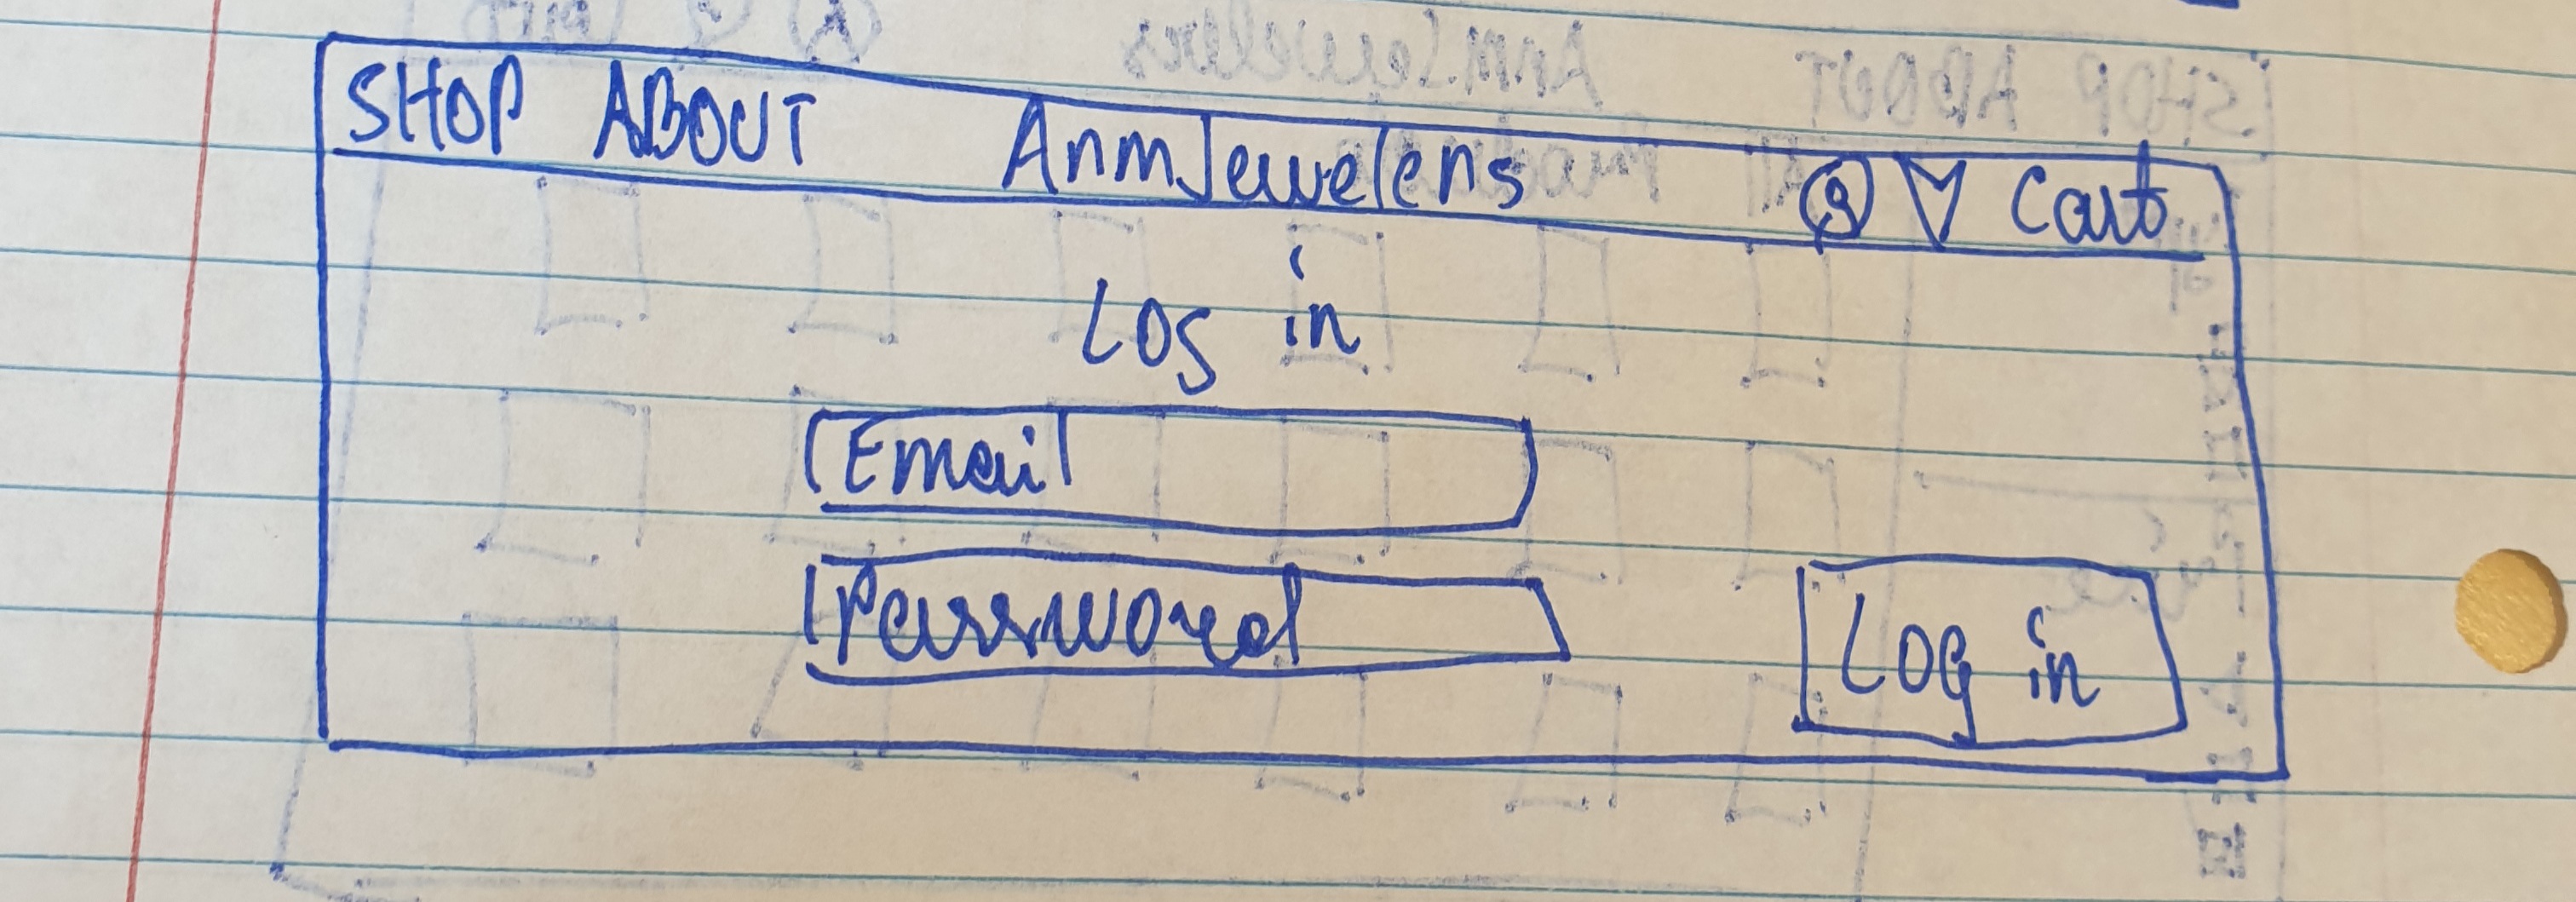 SHOP ABOUT AnmJewelers Cart
Log in
Email
Password
Log in